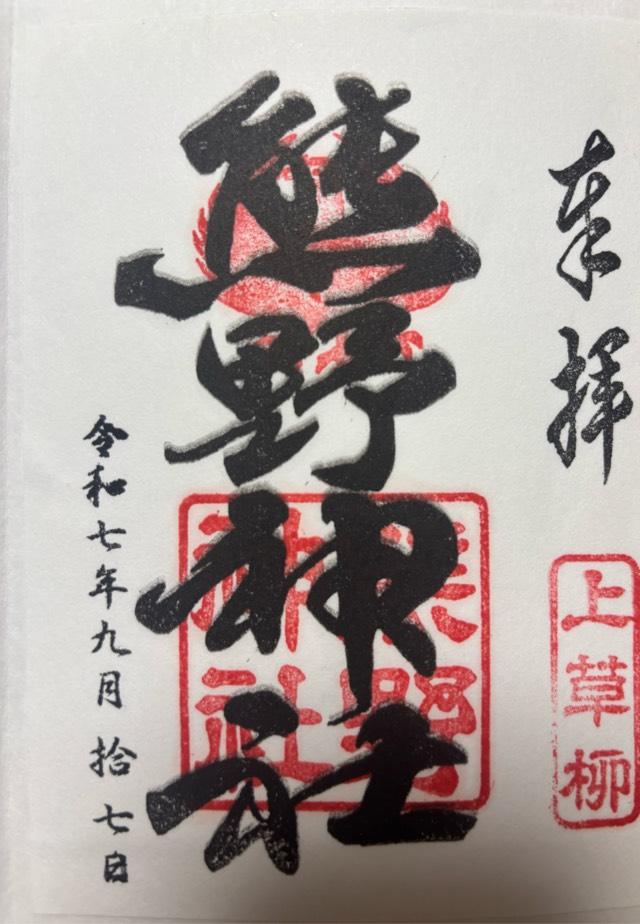 奉拝
上草柳
熊野神社
熊野神社
令和七年九月拾七日